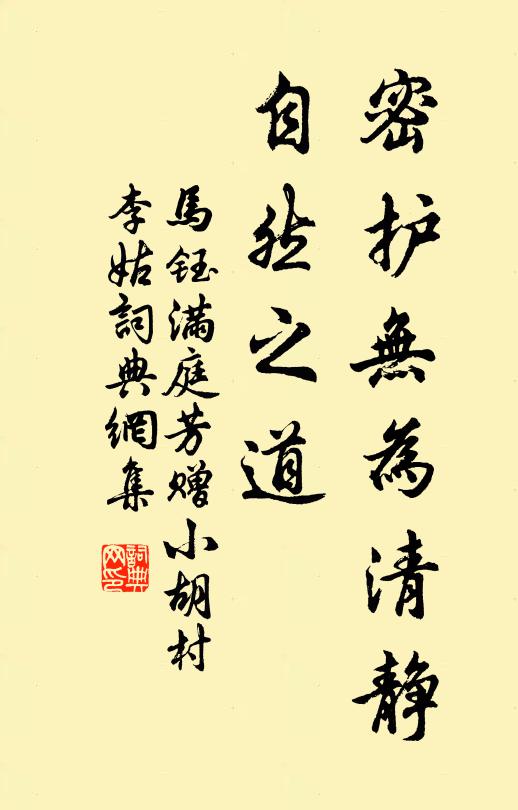 密护無為清静
自然之道
馬鈺滿庭芳赠小胡村
李姑詞典網集
詞典网印